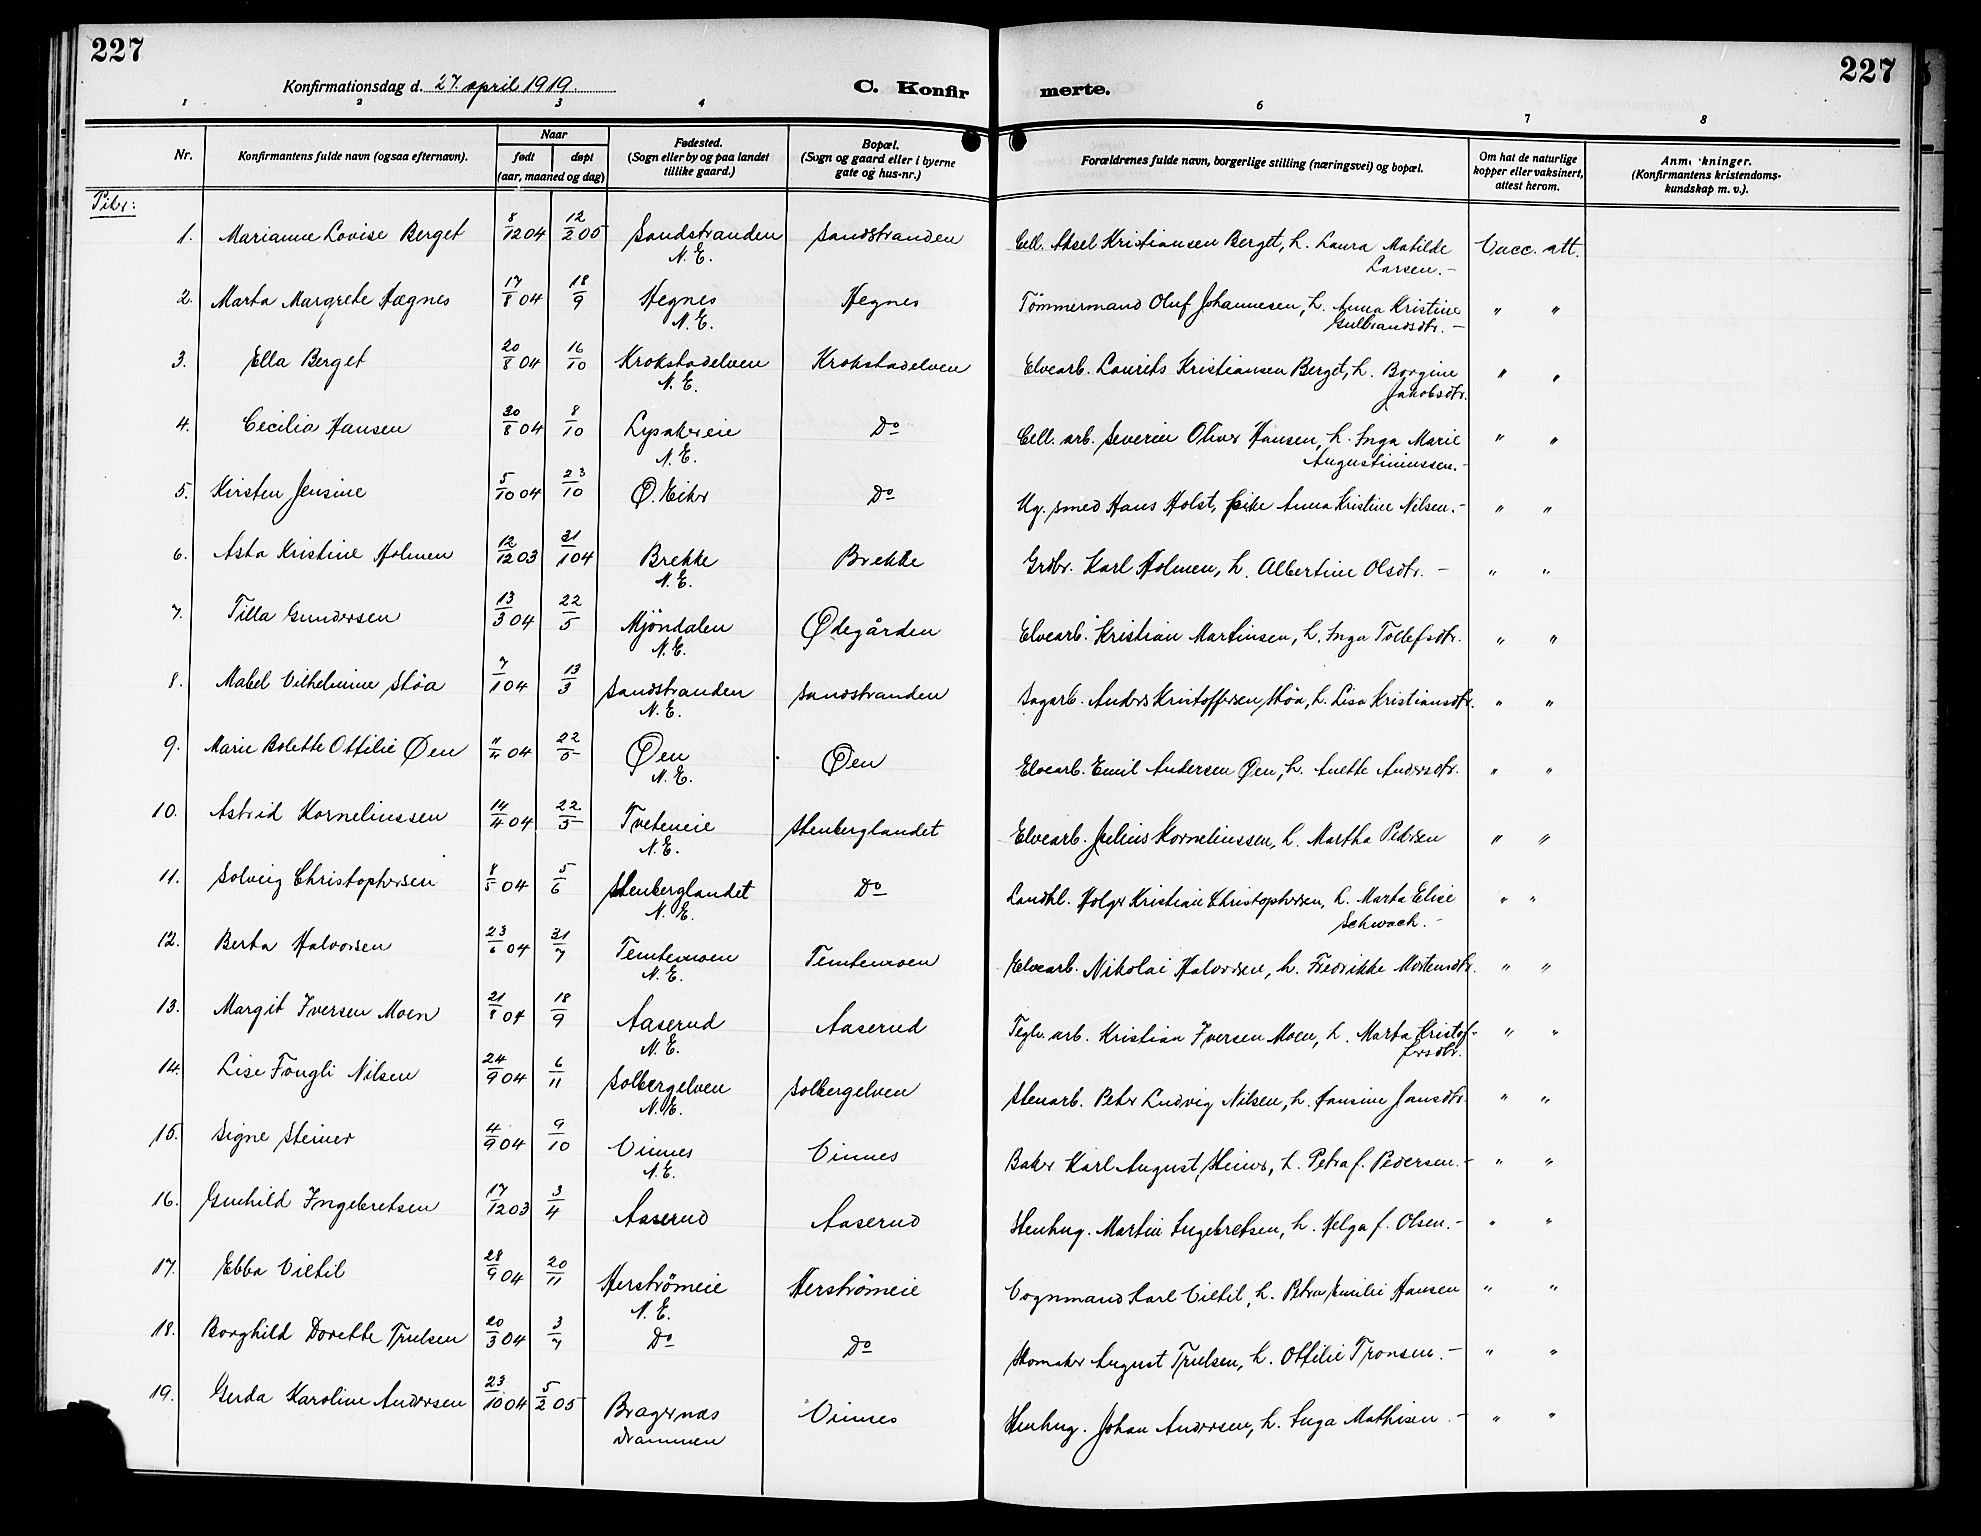 227
227
Konfirmationsdag d. 27. april 1919.
C. Konfir merte.
1 2 3 4 6 7 8
Nr. Konfirmantens fulde navn (ogsaa efternavn). Naar født døpt (aar, maaned og dag) Fødested. (Sogn eller by og paa landet tillike gaard.) Bopæl. (Sogn og gaard eller i byerne gate og hus-nr.) Forældrenes fulde navn, borgerlige stilling (næringsvei) og bopæl. Om hat de naturlige kopper eller vaksinert, attest herom. Anmerkninger. (Konfirmantens kristendoms-kundskap m. v.).
Piker:
1. Marianne Lovise Berget 8/12 04 12/2 05 Sandstranden N.E. Sandstranden Cell. Aksel Kristiansen Berget, h. Laura Matilde Larsen.- Vacc. att.
2. Marta Margrete Hægnes 17/8 04 18/9 Hegnes N.E. Hegnes Tømmermand Oluf Johannesen, h. Anna Kristine Gulbrandsdtr. - " "
3. Ella Berget 20/8 04 16/10 Krokstadelven N.E. Krokstadelven Elvearb. Laurits Kristiansen Berget, h. Borgine Jakobsdtr. " "
4. Cecilia Hansen 30/8 04 8/10 Lysakereie N.E. Do Cell. arb. Severin Oliver Hansen, h. Inga Marie Augustinussen.- " "
5. Kirsten Jensine 5/10 04 23/10 Ø. Eiker Do Ug. smed Hans Holst, pike Anna Kristine Nilsen.- " "
6. Asta Kristine Holmen 12/12 03 31/1 04 Brekke N.E. Brekke Grdbr. Karl Holmen, h. Albertine Olsdtr. - " "
7. Tilla Gundersen 13/3 04 22/5 Mjöndalen N.E. Ødegården Elvearb. Kristian Martinsen, h. Inga Tollefsdtr. " "
8. Mabel Vilhelmine Støa 7/1 04 13/3 Sandstranden N.E. Sandstranden Sagarb. Anders Kristoffersen Støa, h. Lisa Kristiansdtr. " "
9. Marie Bolette Ottilie Øen 11/4 04 22/5 Øen N.E. Øen Elvearb. Emil Andersen Øen, h. Anette Andersdtr. " "
10. Astrid Kornelinssen 14/4 04 22/5 Tveteneie N.E. Stenberglandet Elvearb. Julius Kornelinssen, h. Martha Pedersen " "
11. Solveig Christophersen 8/5 04 5/6 Stenberglandet N.E. Do Landhl. Holger Kristian Christophersen, h. Marta Elise Schwach. - " "
12. Berta Halvorsen 23/6 04 31/7 Temtemoen N.E. Temtemoen Elvearb. Nikolai Halvorsen, h. Fredrikke Mortensdtr. " "
13. Margit Iversen Moen 21/8 04 18/9 Aaserud N.E. Aaserud Teglv. arb. Kristian Iversen Moen, h. Marta Kristof-fersdtr. " "
14. Lise Fougli Nilsen 24/9 04 6/11 Solbergelven N.E. Solbergelven Stenarb. Peter Ludvig Nilsen, h. Hansine Jansdtr. " "
15. Signe Steiner 4/9 04 9/10 Vinnes N.E. Vinnes Baker Karl August Steiner, h. Petra f. Pedersen.- " "
16. Gunhild Ingebretsen 17/12 03 3/4 Aaserud Aaserud Stenhug. Martin Ingebretsen, h. Helga f. Olsen.- " "
17. Ebba Viltil 28/9 04 20/11 Herströmeie N.E. Herströmeie Vognmand Karl Viltil, h. Petra Emilie Hansen " "
18. Borghild Dorette Trulsen 20/3 04 3/7 Do Do Skomaker August Trulsen, h. Ottilie Tronsen.- " "
19. Gerda Karoline Andersen 23/10 04 5/2 05 Bragernæs Drammen Vinnes Stenhug. Johan Andersen, h. Inga Mathisen.- " "